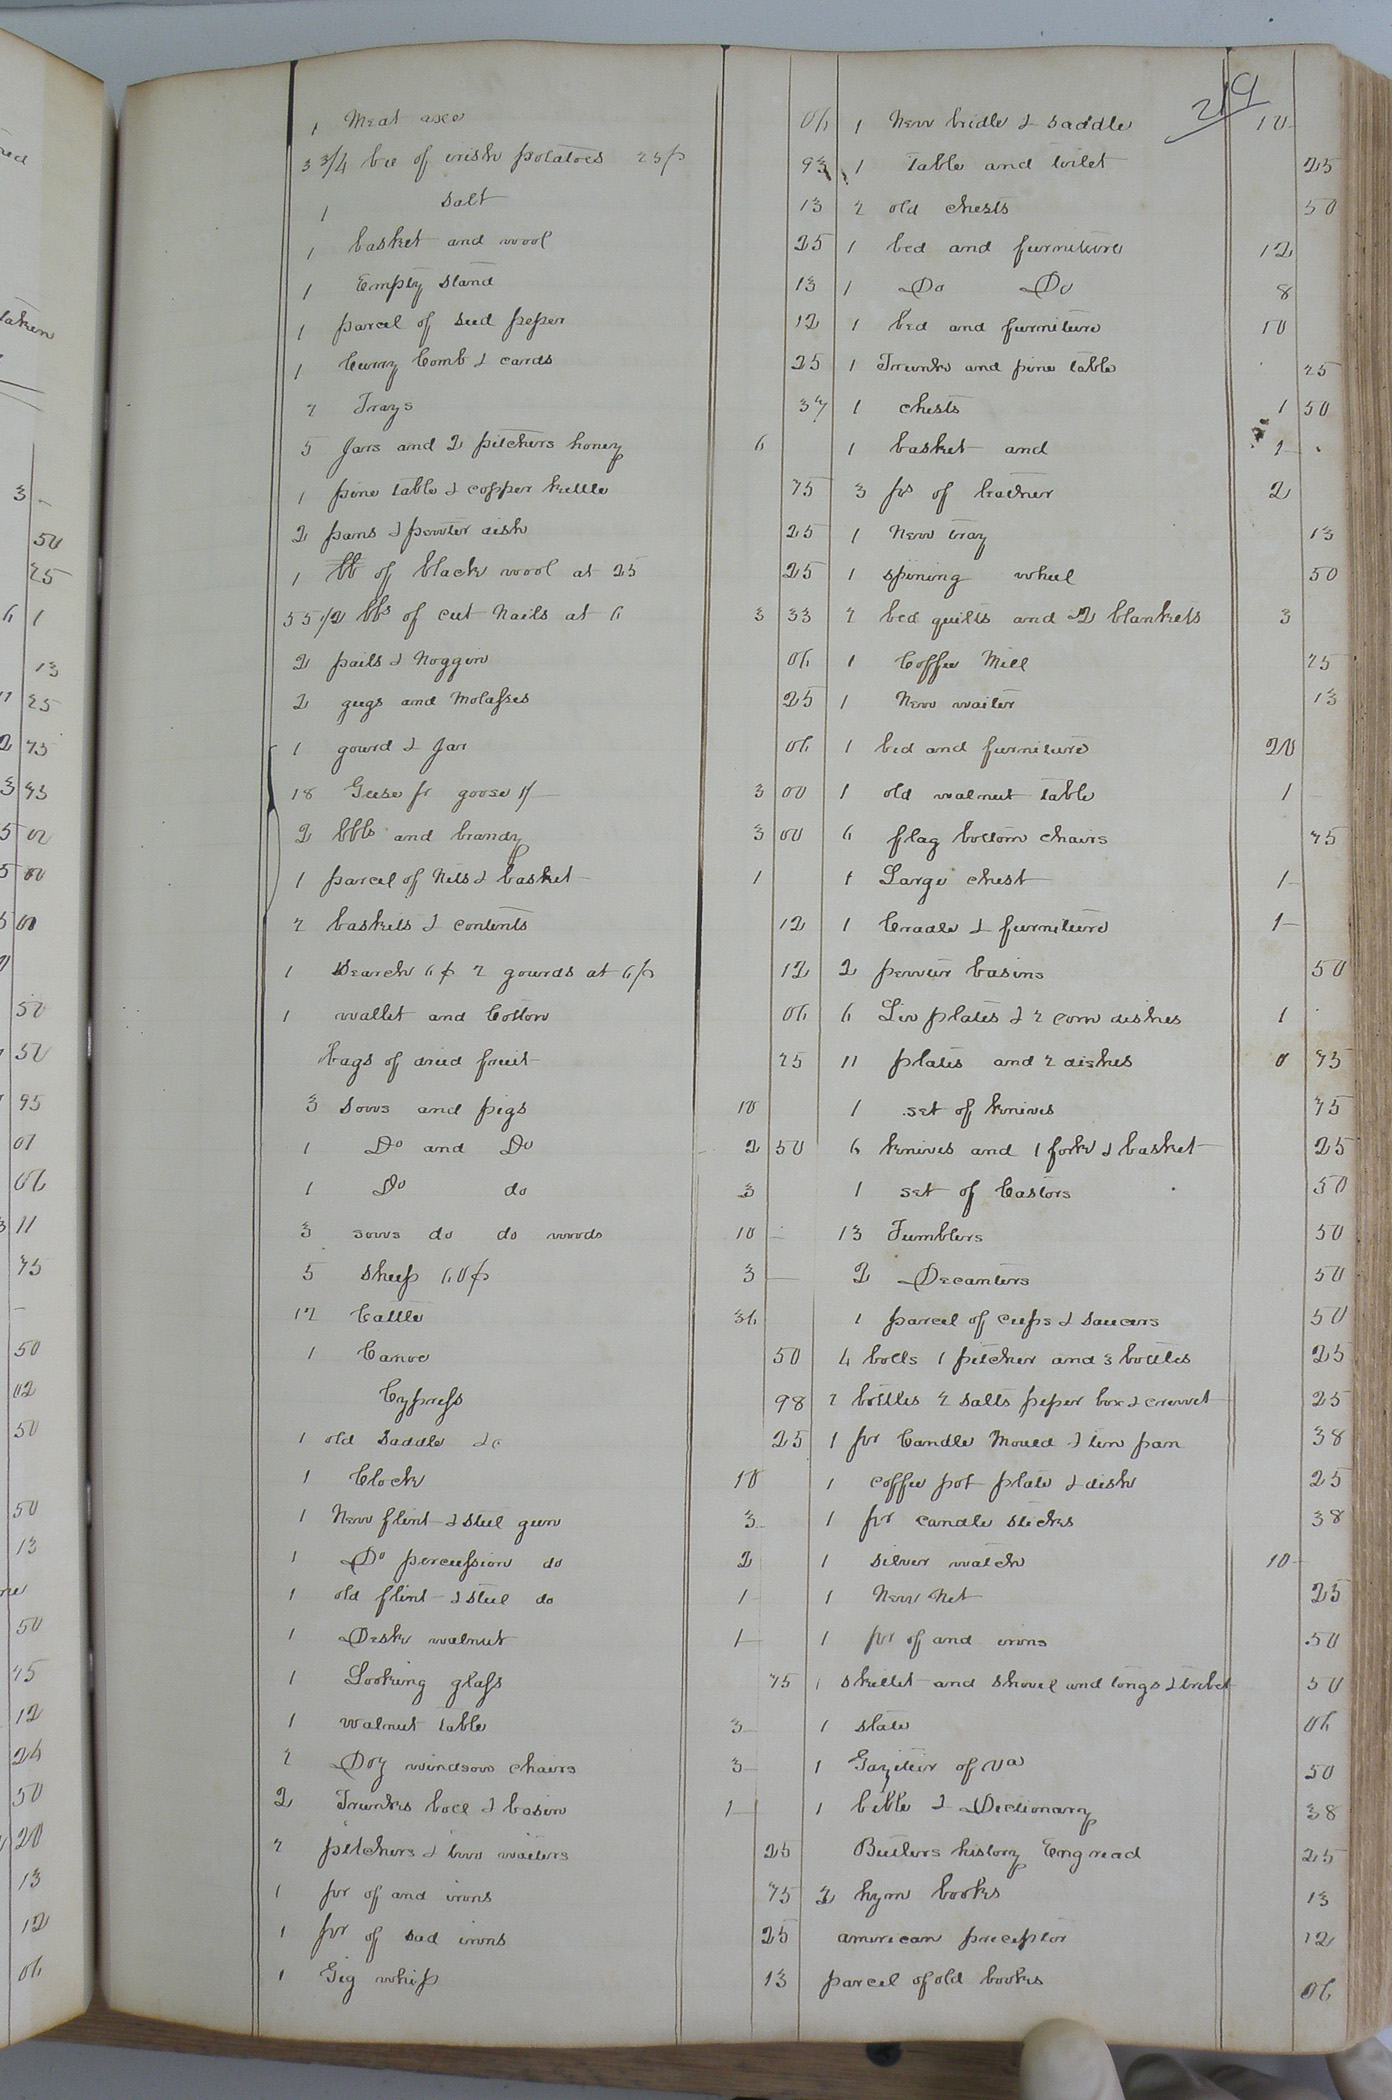 219
1 Meat axe 06
3 3/4 bu of irish potatoes 25 p 93
1 salt 13
1 basket and wool 25
1 Empty stand 13
1 parcel of seed peper 12
1 Curry Comb & cards 25
2 Trays 37
5 Jars and 2 pitchers honey 6
1 pine table & copper kettle 75
2 pans & pewter dish 25
1 lb of black wool at 25 25
55 1/2 lbs of cut Nails at 6 3 33
2 pails & Noggin 06
2 gugs and Molasses 25
1 gourd & Jar 06
18 Geese pr goose 1/ 3 00
2 bbls and brandy 3 00
1 parcel of Nets & basket 1
2 baskets & contents 12
1 Search 6 p 2 gourds at 6 p 12
1 wallet and Cotton 06
bags of dried fruit 25
3 sows and pigs 10
1 Do and Do 2 50
1 Do do 3
3 sows do do woods 10 -
5 sheep 60 p 3 -
12 Cattle 36
1 Canoe 50
Cypress 98
1 old saddle &c 25
1 Clock 10
1 New flint & steel gun 3
1 Do percussion do 2
1 old flint & steel do 1
1 Desk walnut 1
1 Looking glass 75
1 walnut table 3
2 Doz windsow chairs 3
2 Trunks bocl & basin 1
2 pitchers & two waiters 25
1 pr of and irons 75
1 pr of sad irons 25
1 Gig whip 13
1 New bridle & saddle 10
1 table and toilet 25
2 old chests 50
1 bed and furniture 12
1 Do Do 8
1 bed and furniture 10
1 Trunk and pine table 25
1 chests 1 50
1 basket and 1
3 ps of leather 2
1 New tray 13
1 spining wheel 50
2 bed quilts and 2 blankets 3
1 Coffee Mill 25
1 New waiter 13
1 bed and furniture 20
1 old walnut table 1
6 flag bottom chairs 75
1 Large chest 1
1 Cradle & furniture 1
2 pewter basins 50
6 Tin plates & 2 corn dishes 1
11 plates and 2 dishes 0 75
1 set of knives 75
6 knives and 1 fork & basket 25
1 set of Castors 50
13 Tumblers 50
2 Decanters 50
1 parcel of cups & saucers 50
4 bolls 1 pitcher and 3 bottles 25
2 bottles 2 salts peper box & crewet 25
1 pr Candle Mould & tin pan 38
1 coffee pot plate & dish 25
1 pr candle sticks 38
1 silver watch 10
1 New Net 25
1 pr of and irons 50
1 skillet and shovel and tongs & tribet 50
1 slate 06
1 Gaziteir of Va 50
1 bible & Dictionary 38
Butlers history Eng read 25
2 hym books 13
american preceptor 12
parcel of old books 06